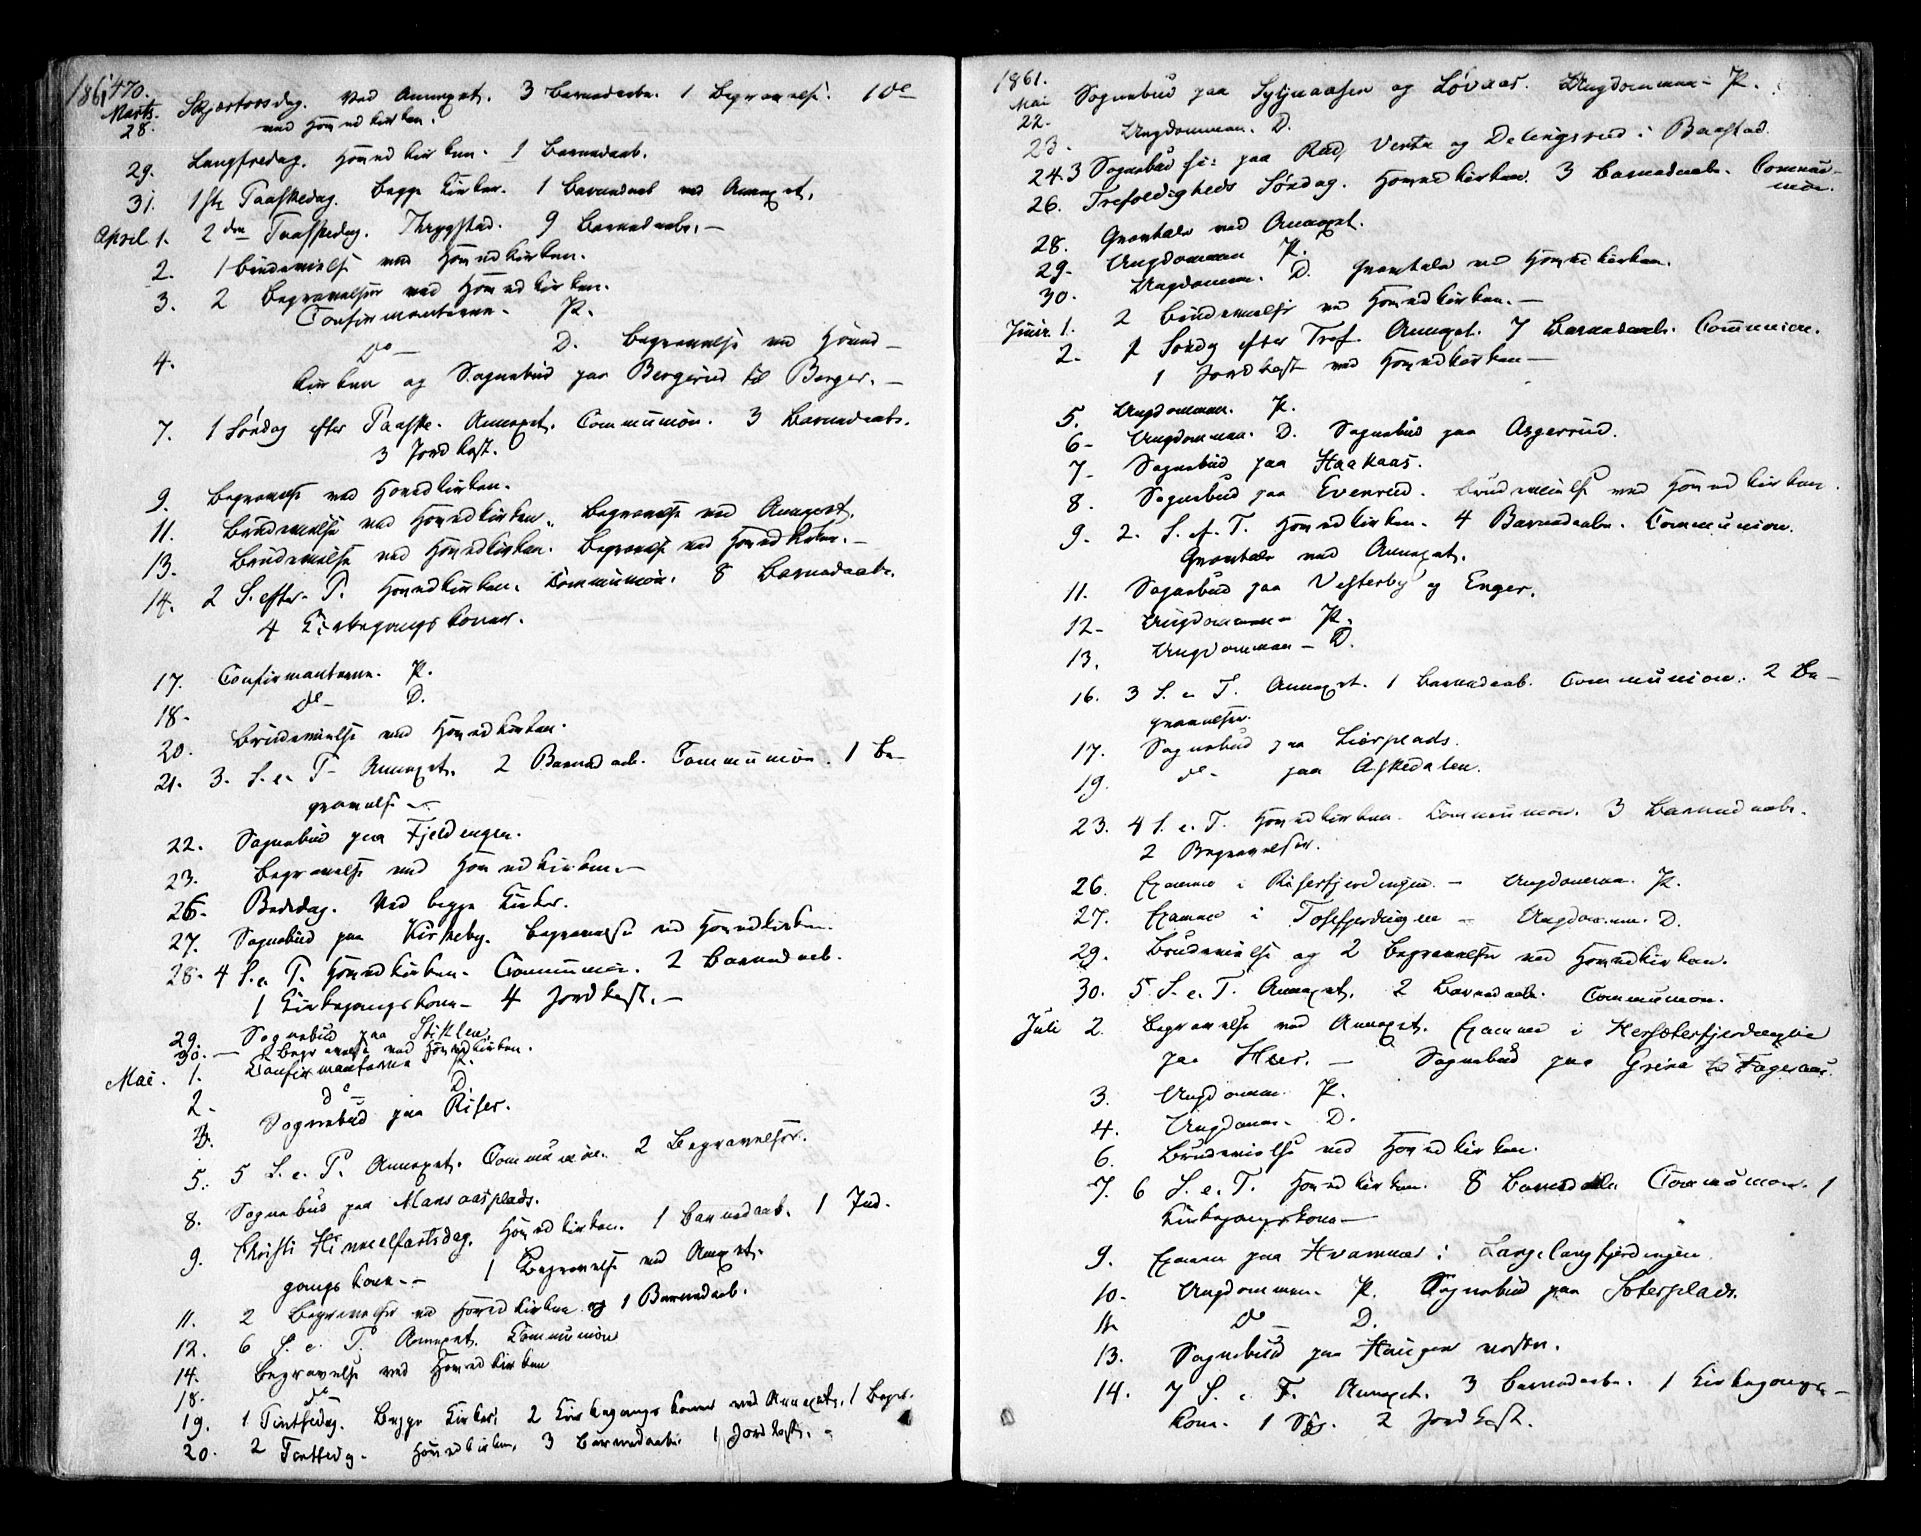 1861 470.
Marts 28. Skjærtorsdag. Ved Annexet. 3 Barnedaabe. 1 Begravelse. 1 do
ved Hovedkirken.
29. Langfredag. Hovedkirken. 1 Barnedaab.
31. 1ste Paaskedag. Begge Kirker. 1 Barnedaab ved Annexet.
April 1. 2den Paaskedag. Thrygstad. 9 Barnedaabe. —
2. 1 Brudevielse ved Hovedkirken.
3. 2 Begravelser ved Hovedkirken.
Confirmanterne. P.
4. do — D. Begravelse ved Hoved-
kirken og Sognebud paa Bergerud til Berger. —
7. 1 Søndag efter Paaske. Annexet. Communion. 3 Barnedaabe.
3 Jordkast.
9. Begravelse ved Hovedkirken.
11. Brudevielse ved Hovedkirken. Begravelse ved Annexet.
13. Brudevielse ved Hovedkirken. Begravelse ved Hovedkirken. —
14. 2 S. efter P. Hovedkirken. Communion. 8 Barnedaabe.
4 Kirkegangskoner.
17. Confirmanterne. P.
18. do — D.
20. Brudevielse ved Hovedkirken.
21. 3. S. e. P. Annexet. 2 Barnedaabe. Communion. 1 Be-
gravelse —
22. Sognebud paa Fjeldengen.
23. Begravelse ved Hovedkirken. —
26. Bededag. Ved begge Kirker.
27. Sognebud paa Kirkeby. Begravelse ved Hovedkirken.
28. 4 S. e. P. Hovedkirken. Communion. 2 Barnedaab.
1 Kirkegangskone — 4 Jordkast. —
29. Sognebud paa Stiklen
30. — Begravelse ved Hovedkirken.
Mai. 1. Confirmanterne P.
2. do — D.
3. Sognebud paa Riser.
5. 5 S. e. P. Annexet. Communion. 2 Begravelser.
8. Sognebud paa Mansaasplads.
9. Christi Himmelfartsdag. Hovedkirken. 1 Barnedaab. 1 Ind-
gangskone — 1 Begravelse ved Annexet.
11. 2 Begravelser ved Hovedkirken og 1 Barnedaab.
12. 6 S. e. P. Annexet. Communion
14. Begravelse ved Hovedkirken
18. do
19. 1 Pintsedag. Begge Kirker. 2 Kirkegangskoner ved Annexet. 1 Begr.
20. 2 Pintsedag. Hovedkirken. 3 Barnedaabe 1 Jordkast. —
1861.
Mai 22. Sognebud paa Syljuaasen og Løvaas. Ungdommen — P.
23. Ungdommen. D.
24. 3 Sognebud paa Rud, Venta og Delingsrud i Baastad.
26. Trefoldigheds Søndag. Hovedkirken. 3 Barnedaabe. Commu-
nion.
28. Gravtale ved Annexet.
29. Ungdommen P.
30. Ungdommen. D. Gravtale ved Hovedkirken.
Juni 1. 2 Brudevielser ved Hovedkirken. —
2. 1 Søndag efter Tref. Annexet. 7 Barnedaabe. Communion.
1 Jordkast ved Hovedkirken —
5. Ungdommen. P.
6. Ungdommen. D. Sognebud paa Asgerrud.
7. Sognebud paa Haakaas.
8. Sognebud paa Evenrud. Brudevielse ved Hovedkirken.
9. 2. S. ef. T. Hovedkirken. 4 Barnedaabe. Communion.
Gravtale ved Annexet.
11. Sognebud paa Vesterby og Enger.
12. Ungdommen — P.
13. Ungdommen — D.
16. 3 S. e T. Annexet. 1 Barnedaab. Communion. 2 Be-
gravelser.
17. Sognebud paa Lierplads.
19. do — paa Askedalen.
23. 4 S. e. T. Hovedkirken. Communion. 3 Barnedaabe.
2 Begravelser.
26. Examen i Riserfjerdingen. — Ungdommen. P.
27. Examen i Tosefjerdingen — Ungdommen. D.
29. Brudevielse og 2 Begravelser ved Hovedkirken.
30. 5 S. e. T. Annexet. 2 Barnedaabe. Communion.
Juli 2. Begravelse ved Annexet. Examen i Hersæterfjerdingen
paa Heer. — Sognebud paa Grina Fageraas.
3. Ungdommen. P.
4. Ungdommen — D.
6. Brudevielse ved Hovedkirken.
7. 6 S. e. T. Hovedkirken. 8 Barnedaabe. Communion. 1
Kirkegangskone —
9. Examen paa Hvammer i Langelangfjerdingen
10. Ungdommen. P. Sognebud paa Soterplads.
11. do — D.
13. Sognebud paa Haugen nordre.
14. 7 S. e T. Annexet. 3 Barnedaabe. 1 Kirkegangs-
kone. 2 Jordkast.